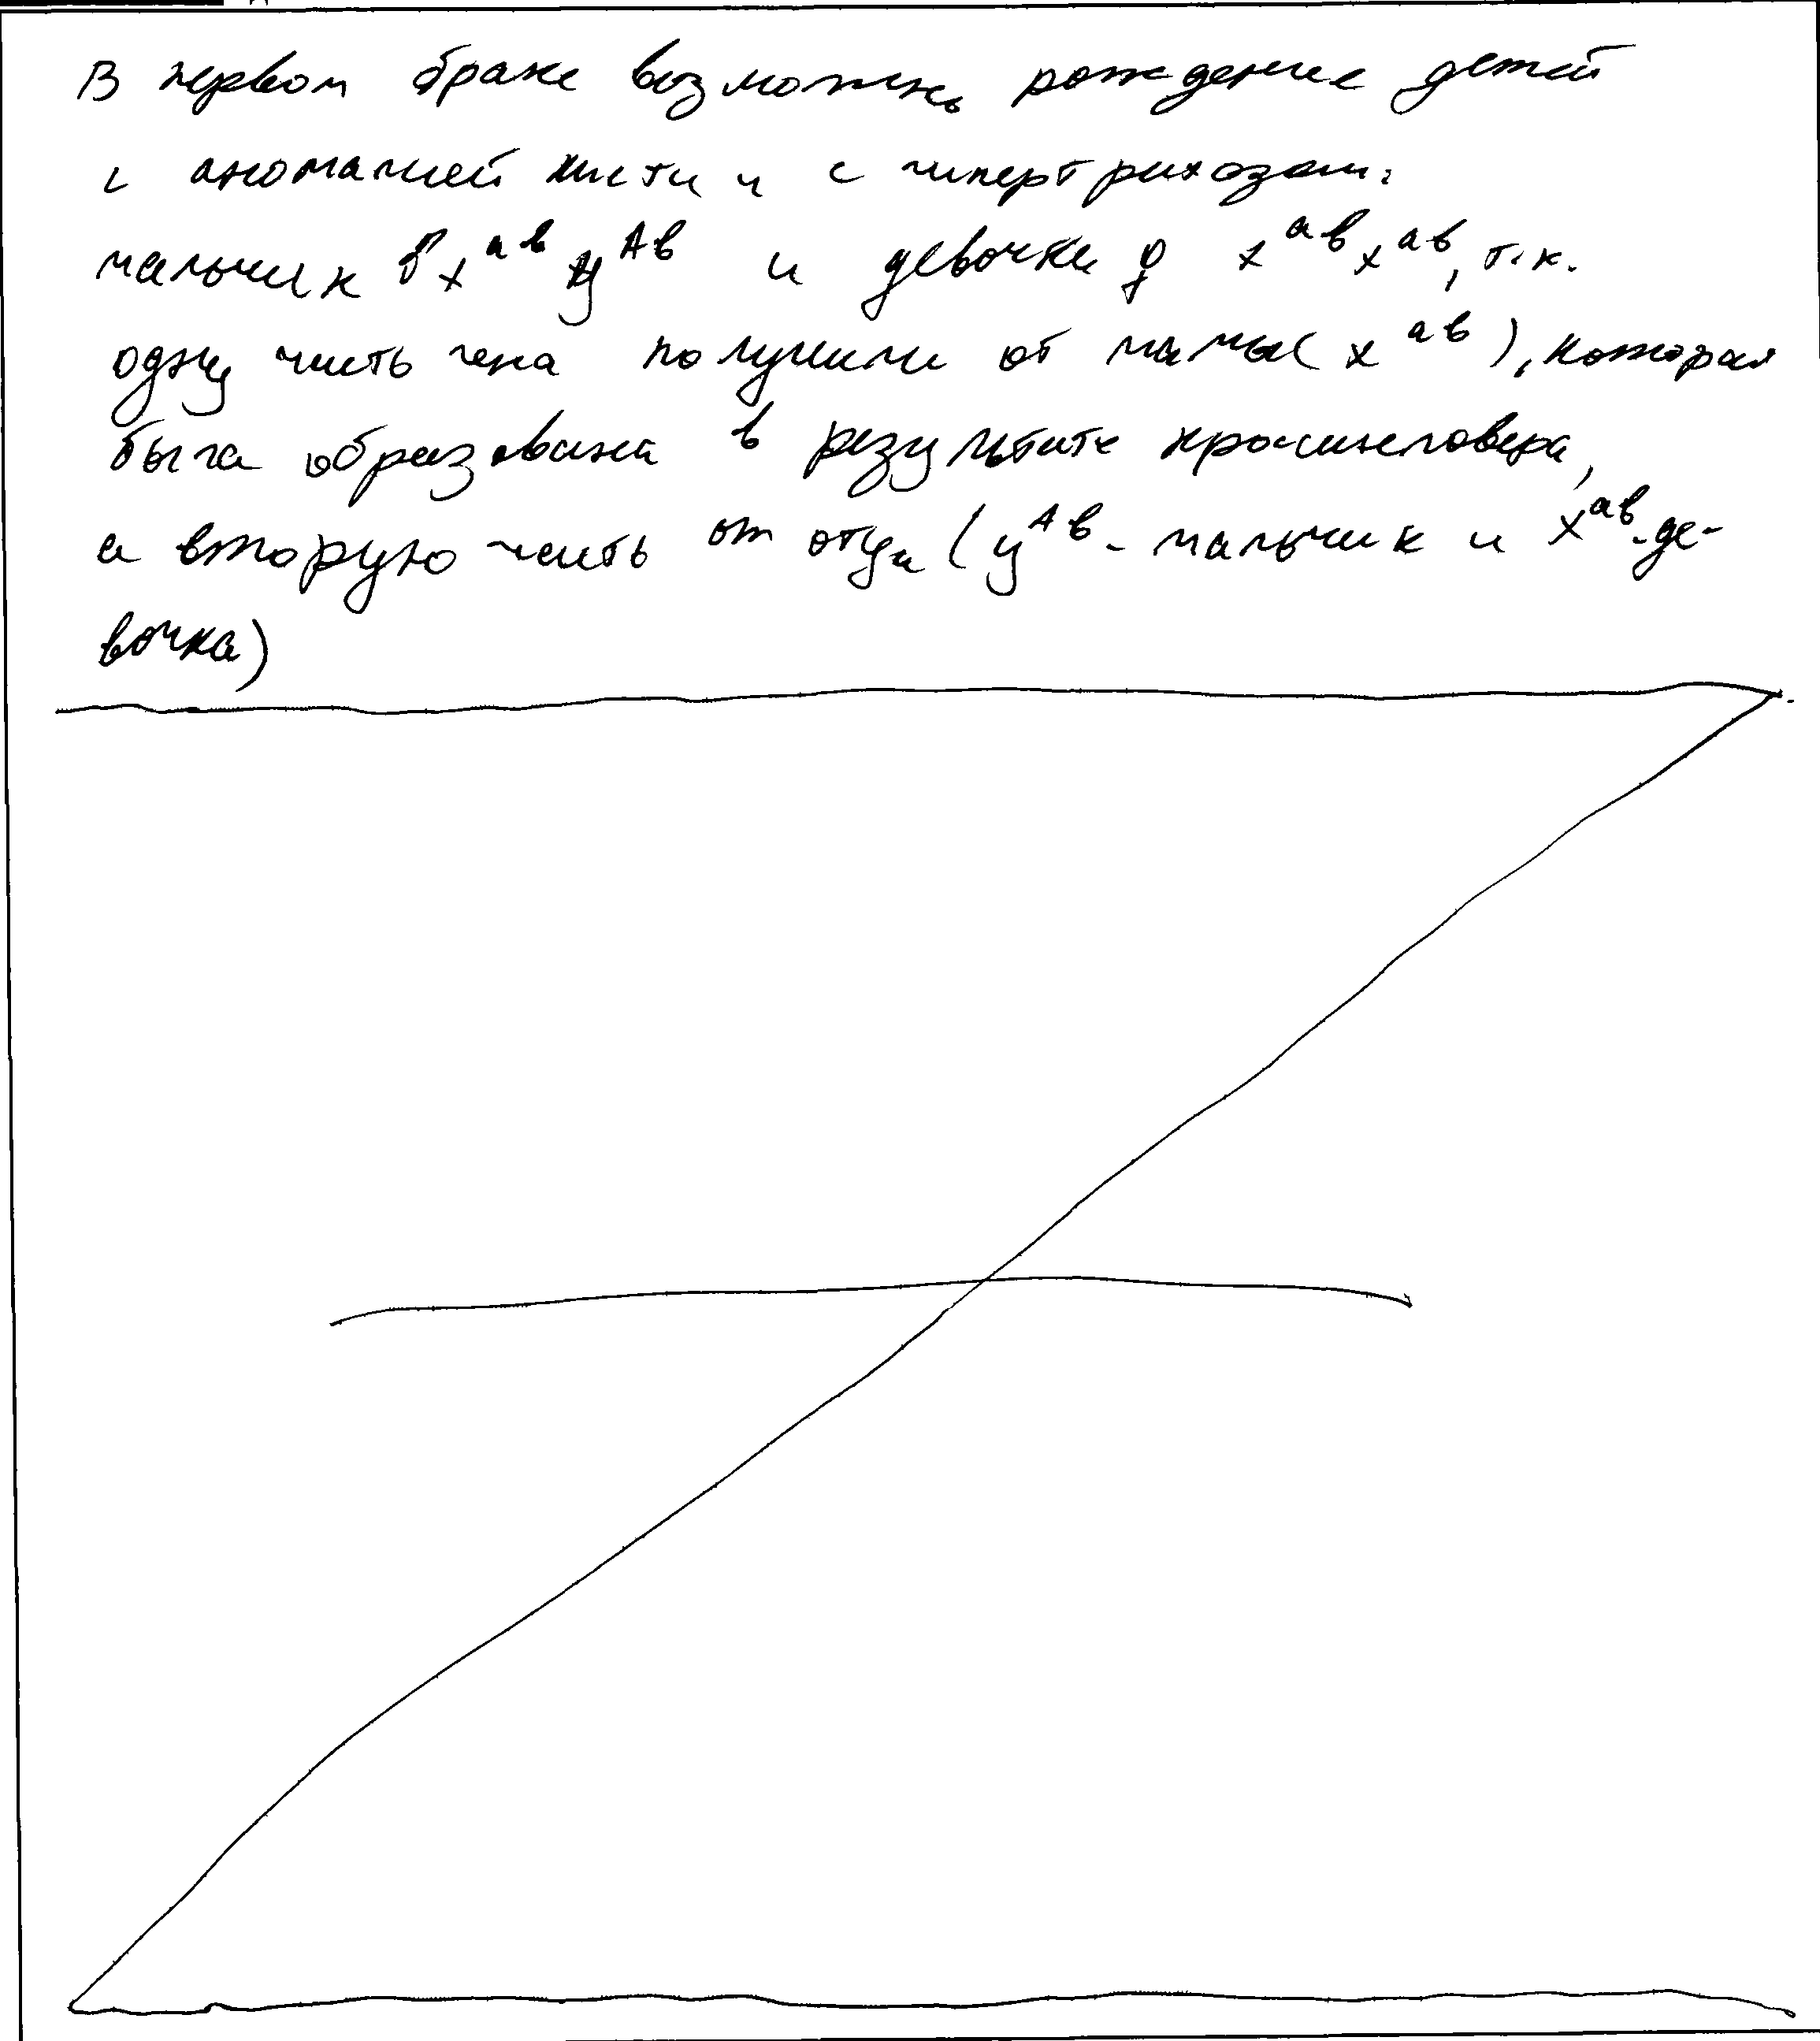 В первом браке возможно рождение детей
с аномалией кисти и с гипертрихозом:
мальчик ♂ x^ab y^Ab и девочка ♀ x^ab x^ab, т.к.
одну часть гена получили от мамы (x^ab), которая
была образована в результате кроссинговера,
а вторую часть от отца (y^Ab - мальчик и x^ab - де-
вочка)